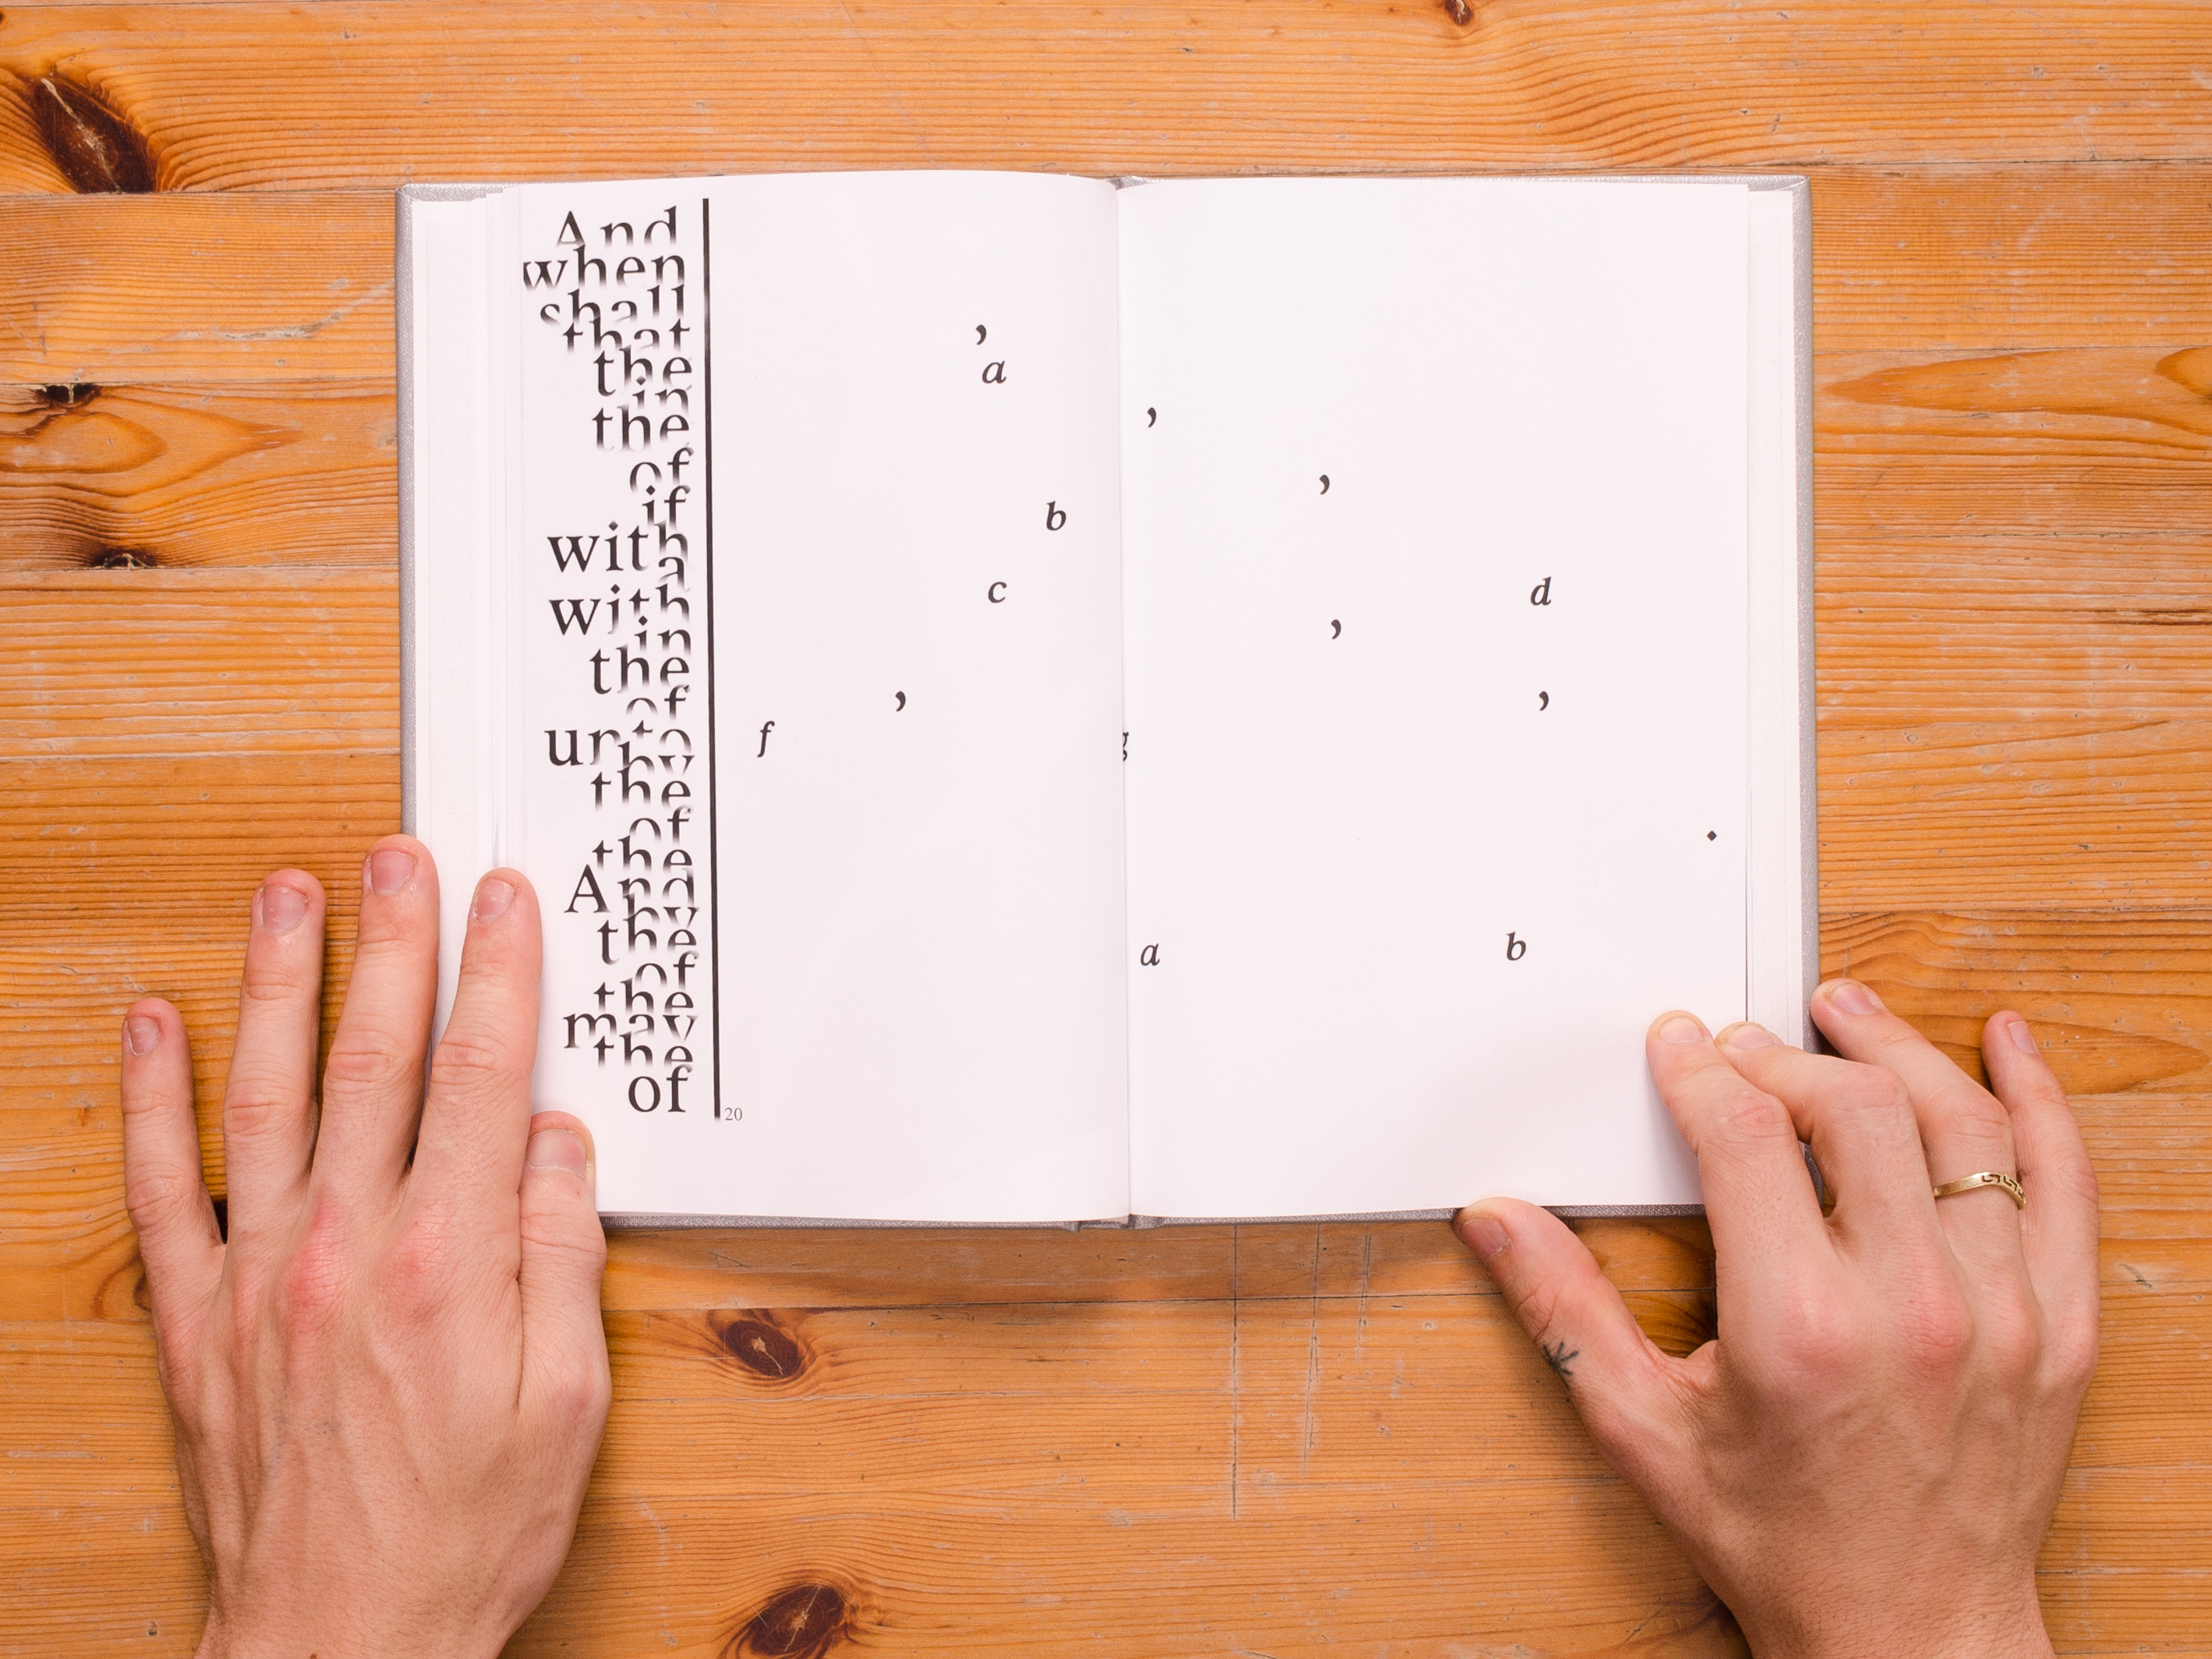 And
when
shall
that
the
in
the
of
if
with
a
with
in
the
of
unto
by
the
of
the
And
by
the
of
the
may
the
of
,
a
,
,
b
c d
,
, ,
f g
.
a b
20